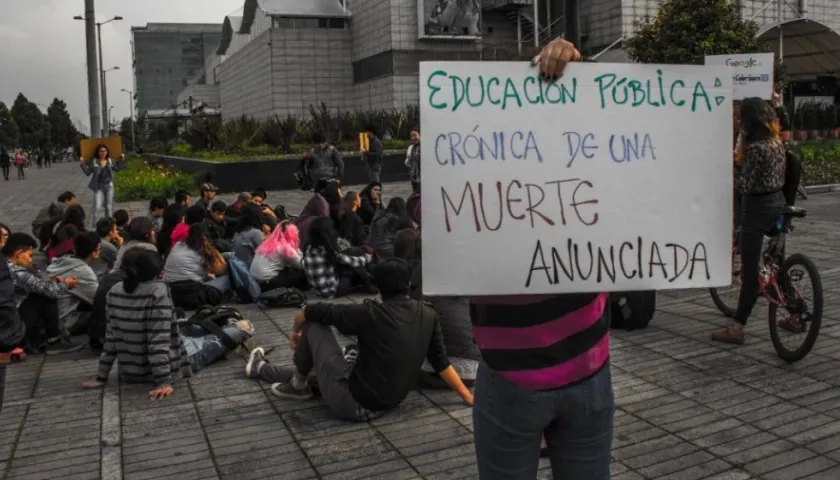 EDUCACIÓN PÚBLICA:
CRÓNICA DE UNA
MUERTE
ANUNCIADA
Google